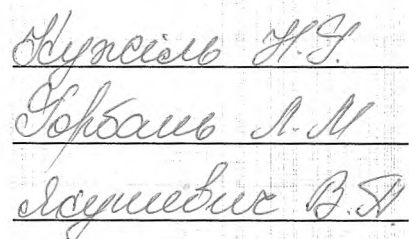 Кужіль Н.Я.
Горбань Л.М
Якушевич В.П